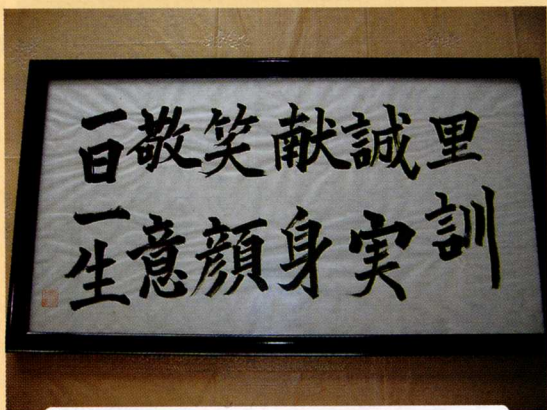 里訓
誠実
献身
笑顔
敬意
一日一生